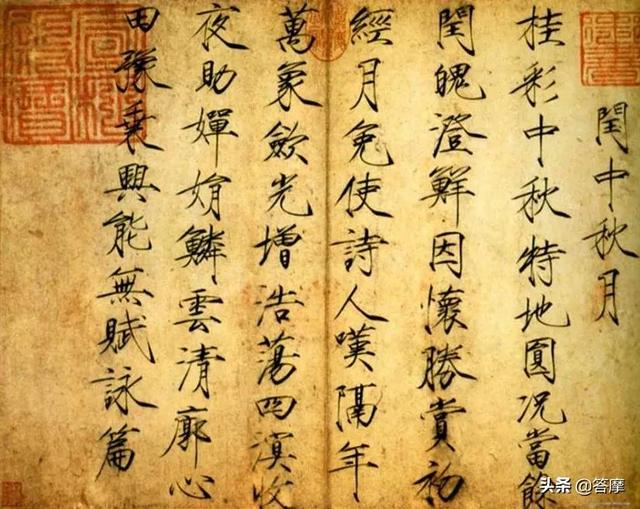 閏中秋月
桂彩中秋特地圓况當餘
閏魄澄鮮因懷勝賞初
經月免使詩人嘆隔年
萬象歛光增浩蕩四溟收
夜助嬋娟鱗雲清廓心
田豫乘興能無賦詠篇
头条 @答摩